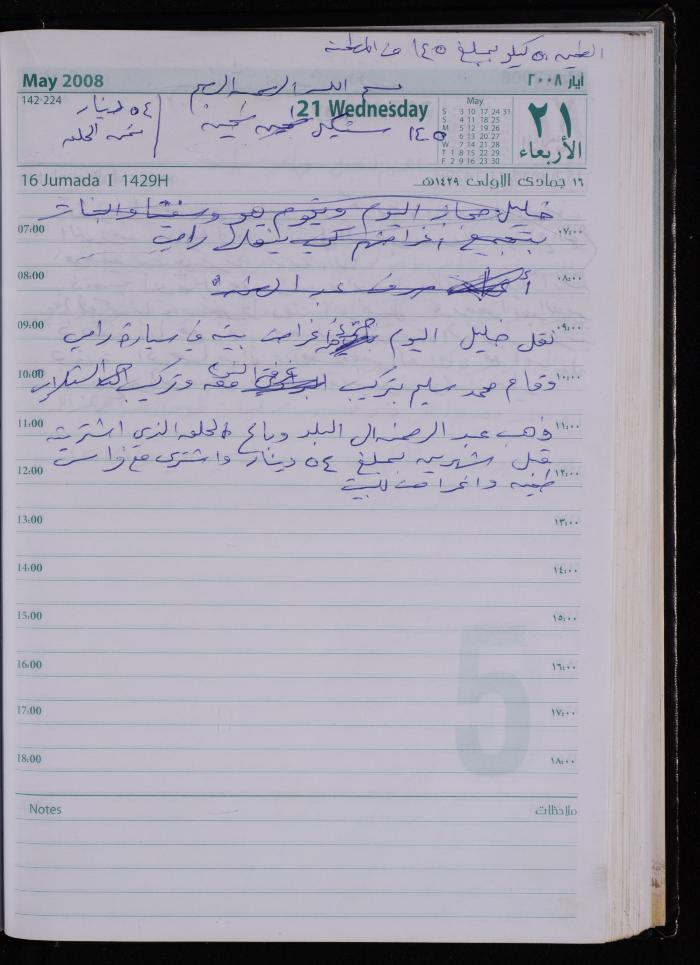 الطحين ٥٠ كيلو بمبلغ ١٤٥ من المطحنة
May 2008
أيار ٢٠٠٨
بسم الله الرحمن الرحيم
142-224
٥٤ دينار
ثمن الحلقه
21 Wednesday
١٤٥ شيكل طحين
May
S 3 10 17 24 31
S 4 11 18 25
M 5 12 19 26
T 6 13 20 27
W 7 14 21 28
T 1 8 15 22 29
F 2 9 16 23 30
٢١
الأربعاء
16 Jumada I 1429H
١٦ جمادى الأولى ١٤٢٩هـ
خليل مجاز اليوم ويقوم هو والبنات
07:00 ٠٧:٠٠
بتجميع أغراضهم كي ينقلها رامي
08:00 ٠٨:٠٠
عبد الرحمن
09:00 ٠٩:٠٠
نقل خليل اليوم أغراض بيته في سيارة رامي
10:00 ١٠:٠٠
وقام محمد سليم بتركيب غرفة النوم معه وتركيب
11:00 ١١:٠٠
ذهب عبد الرحمن ال البلد وباع الحلقه الذي اشتريته
قبل شهرين بمبلغ ٥٤ دينار واشترى مع فراس
12:00 ١٢:٠٠
طحينه واغراض للبيت
13:00 ١٣:٠٠
14:00 ١٤:٠٠
15:00 ١٥:٠٠
16:00 ١٦:٠٠
17:00 ١٧:٠٠
18:00 ١٨:٠٠
5
Notes ملاحظات